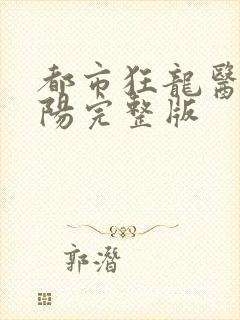 都市狂龍醫
陽完整版
郭潛